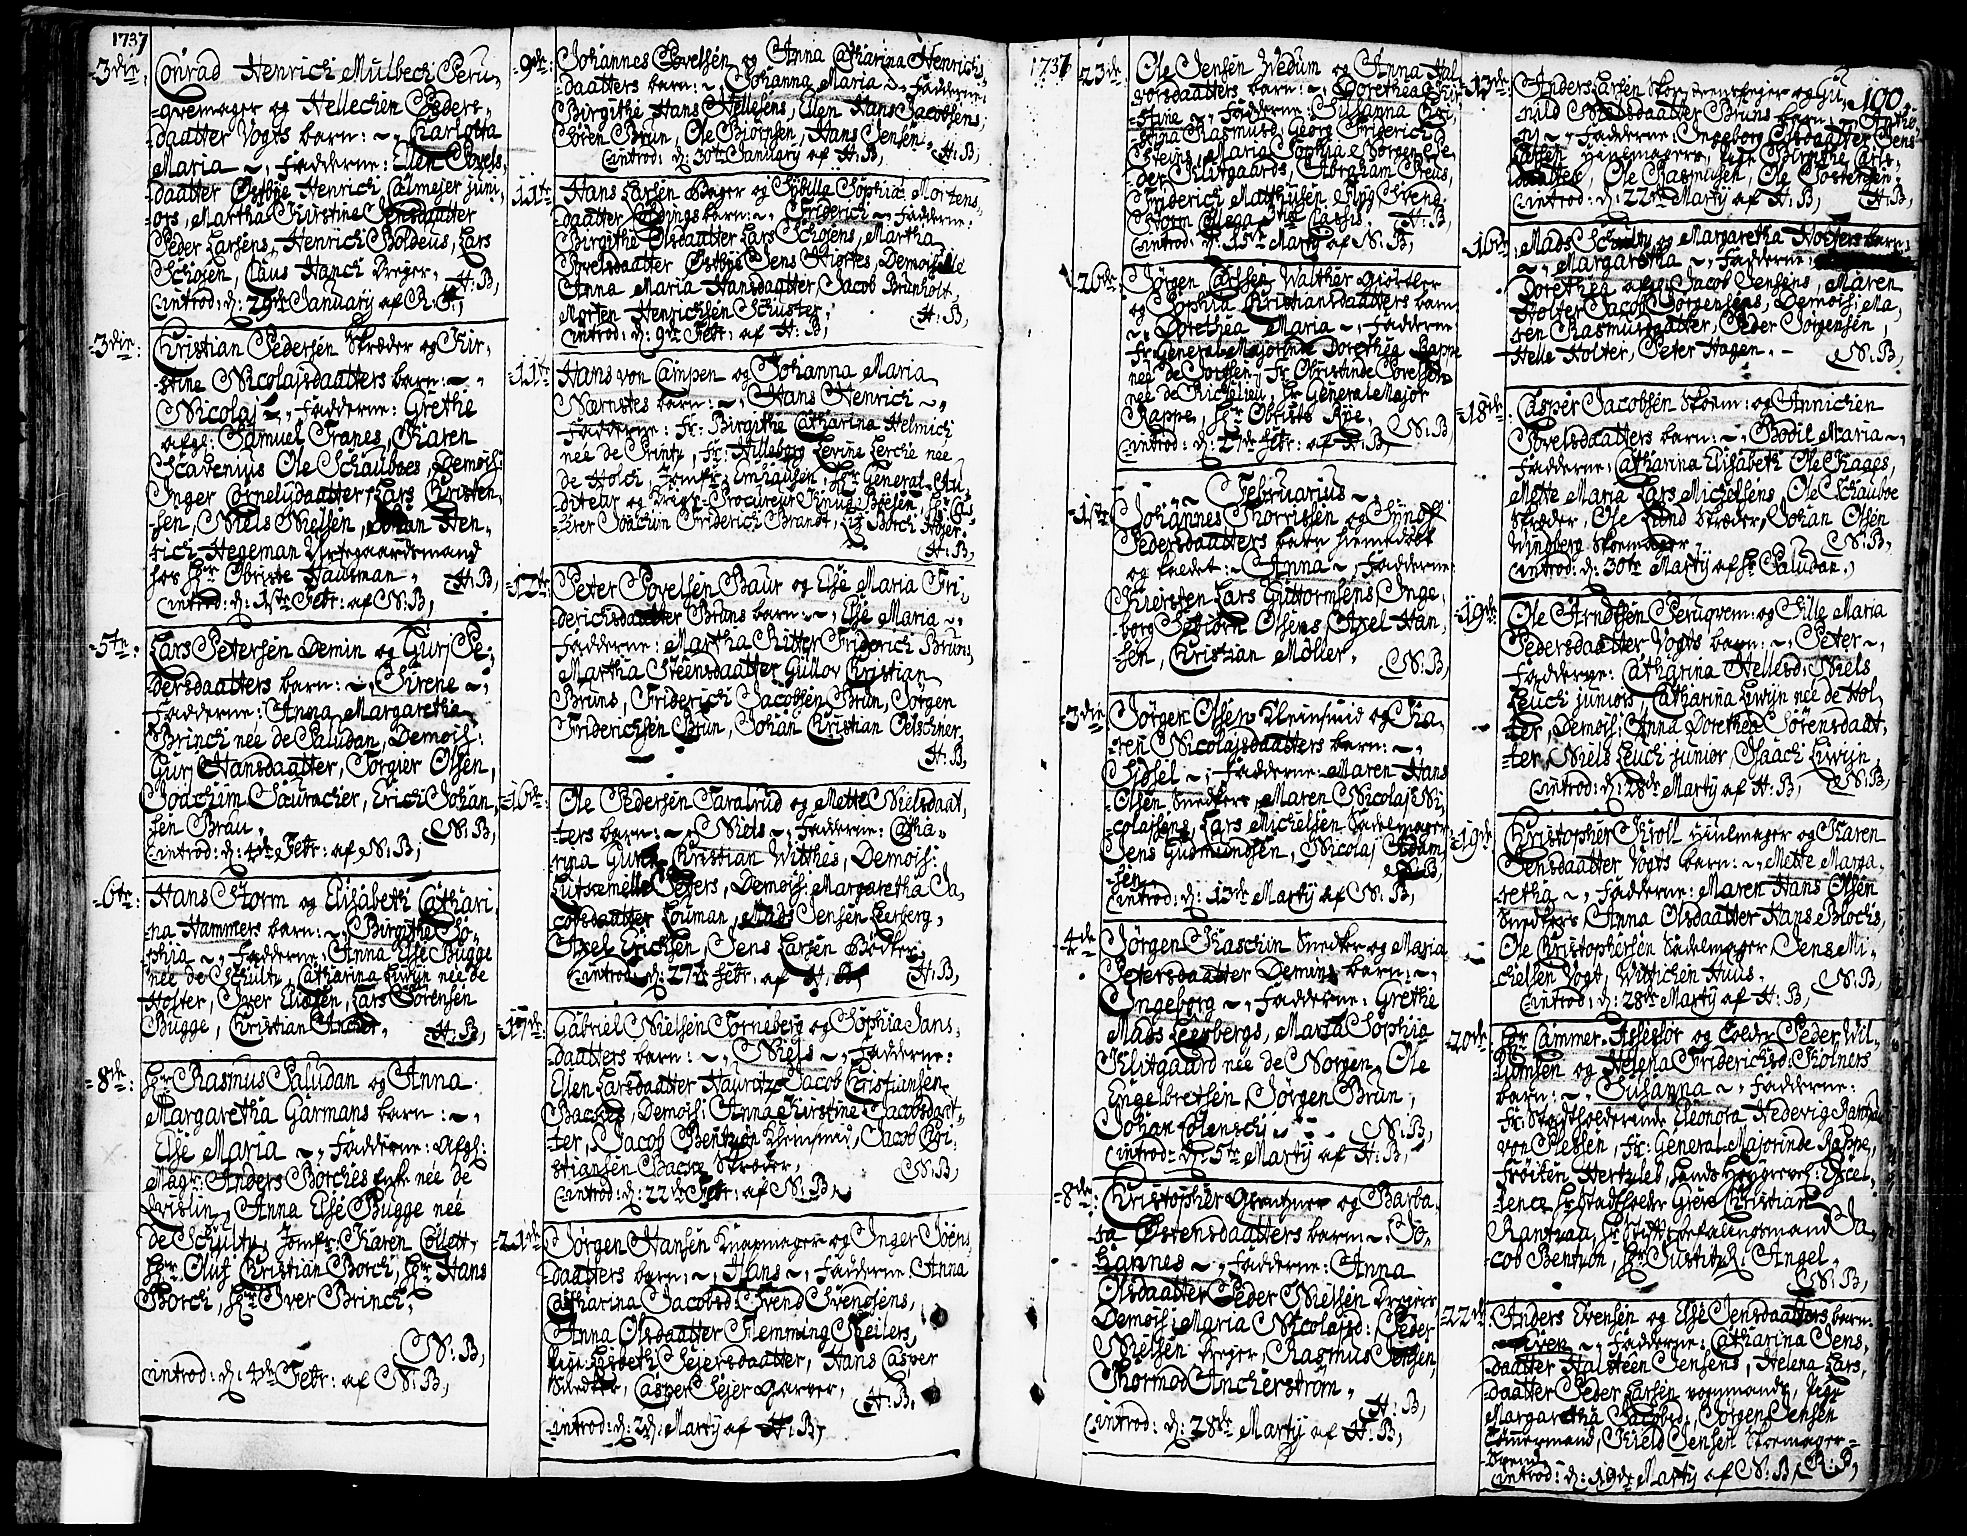 1737
3die
Conrad Henrich Mulbech Peru-
-qvemager og Hellechen Peders-
daatter Vogts barn: ~, Karlotta
Maria ~, Fadderne: Ellen Povels
daatter Østbye Henrich Calmejer juni-
ors, Martha Kirstine Jensdaatter
Peder Larsens, Henrich Boldeus, Lars
Schiøen, Claus Hanch Drejer, H: B,
introd: d: 29de January af
3die
Kristian Pedersen Skræder og Kir-
-stine Nicolajsdaatters barn: ~,
Nicolaj ~, Fadderne: Grethe
afgl: Samuel Tranes, Karen
Scavenius Ole Schauboes, Demois:
Inger Cornelydaatter, Lars Kristen-
-sen, Niels Nielsen, Johan Hen-
rich Hegeman Urtegaardsmand
hos Hr Obriste Hausman, H: B,
introd: d: 1ste Febr: af N: B,
5te
Lars Petersen Demin og Gurj Pe-
dersdaatters barn: ~, Sirene ~,
Fadderne: Anna Margaretha
Brinch née de Paludan, Demois:
Gurj Hansdaatter, Torgier Olsen,
Joachim Sauracher, Erich Johan-
sen Brau, N: B,
introd: d: 4de Febr: af N: B,
6te
Hans Storm og Elisabeth Cathari-
na Hammers barn: ~, Birgithe So-
phia ~, Fadderne: Anna Else Bugge
née de Schultz, Catharina Lwijn née de
Holter, Iver Eliasen, Lars Sørensen
Bugge, Kristian Ancher, H: B,
8de
Hr Rasmus Paludan og Anna
Margaretha Garmans barn: ~,
Else Maria ~, Fadderne: Afgl:
Magr: Anders Borches Enke née de
Anna Else Bugge née
de Schultz, Jomfr: Karen Collett,
Hr: Oluf Kristian Borch, Hr: Hans
Borch, Hr: Iver Brinch,
N: B,
introd: d: 4de Febr: af N: B,
9de
Johannes Povelsen og Anna Catharina Henrichs-
daatters barn: ~, Johanna Maria ~, Fadderne:
Birgithe Hans Hellesens, Ellen Hans Jacobsens,
Søren Brun, Ole Biørnsen, Hans Jensen,
introd: d: 30te January af H: B, H: B,
11te
Hans Larsen Bager og Sybilla Sophia Mortens-
daatter barn: ~, Friderich ~, Fadderne:
Birgithe Olsdaatter Lars Schiøens, Martha
Povelsdaatter Østbye Jens Hiortes, Demoiselle
Anna Maria Hansdaatter, Jacob Brunholt,
Morten Henrichsen Schuster, H: B,
introd: d: 9de Febr: af H: B,
11te
Hans von Campen og Johanna Maria
Nærnstes barn: ~, Hans Henrich ~,
Fadderne: Fr: Birgithe Catharina Helmich
née de Printz, Fr: Hilleborg Levine Lerche née
de Holch, Jomfr: Emhausen, Hr General-Au-
diteur og Krigs-Procureur Knud Boesen, Hr Cas-
serer Joachim Friderich Brandt, Borch
H: B,
12te
Peter Povelsen Baur og Else Maria Fri-
derichsdaatter Bruns barn: ~, Else Maria ~,
Fadderne: Martha Ritter Friderich Bruns,
Martha Steensdaatter Gulløv Kristian
Bruns, Friderich Jacobsen Brun, Jørgen
Friderichsen Brun, Johan Kristian Oelschner,
H: B,
16de
Ole Pedersen Taralrud og Mette Nielsdaat-
ters barn: ~, Niels ~, Fadderne: Catha-
rina Kristian Witthes, Demois:
Demois: Margaretha Ja-
cobsdaatter Louman, Mads Jensen Leerberg,
Axel Erichsen, Jens Larsen Bødker,
introd: d: 27de Febr: af H: B, H: B,
17de
Gabriel Nielsen Torneberg og Sophia Jans-
daatters barn: ~, Niels ~, Fadderne:
Ellen Larsdaatter Hauritz Jacob Kristiansen
Backes, Demois: Anna Kirstine Jacobsdaat-
ter, Jacob Bentzøn Kleinsmid, Jacob Kri-
stiansen Backe Skræder, N: B,
introd: d: 22de Febr: af N: B,
21de
Jørgen Hansen Knapmager og Inger Joens-
daatters barn: ~, Hans ~, Fadderne: Anna
Catharina Jacobsd: Svend Svendsens,
Anna Olsdaatter Flemming Keilers,
Pige Lisbeth Sejersdaatter, Hans Casper
Snedker, Casper Sejer Garver, H: B,
introd: d: 2d: Marty af H: B,
1737
23de
Ole Jensen Wedum og Anna Hal-
vorsdaatters barn: ~, Dorethea Kir-
stine ~, Fadderne: Susanna Kri-
stina Rasmusd: Georg Friderich
Maria Sophia Norgen Pe-
der Klitgaards, Abraham
Friderich Mathiisen, Svend
Storm H: B,
introd: d: 15de Marty af N: B,
26de
Jørgen Carlsen Walther Giørtler
og Sophia Kristiansdaatters barn
~, Dorethea Maria ~, Fadderne
Fr: General-Majorinde Dorethea Rappe
née de Fr: Obristinde
née de Richelieu, Hr General Major
Rappe, Hr Obriste Rÿe, N: B,
introd: d: 27de Febr: af H: B,
~ Februarius ~,
1ste
Johannes Thorrissen og Synøf
Pedersdaatters barn hiemdøbt
og kaldet: ~, Anna ~, Fadderne:
Kiersten Lars Guttormsens, Inge-
borg Asbiørn Olsens Axel Han-
sen, Kristian Møller, N: B,
3die
Jørgen Olsen Kleinsmid og Ka-
ren Nicolajsdaatters barn: ~,
Sidsel ~, Fadderne: Maren Hans
Olsen Snedkers, Maren Nicolaj Ni-
colajsens, Lars Michelsen Sadelmager
Jens Gudmundsen, Nicolaj Adam-
sen, N: B,
introd: d: 13de Marty af N: B,
4de
Jørgen Kaschin Snedker og Maria
Petersdaatter Demins barn: ~,
Ingeborg ~, Fadderne: Grethe
Mads Leerbergs, Maria Sophia
Klitgaard née de Norgen, Ole
Engelbretsen, Jørgen Brun,
Johan N: B,
introd: d: 5te Marty af H: B,
8de
Kristopher Gerntzner og Barba-
ra Østensdaatters barn: ~, Jo-
hannes ~, Fadderne: Anna
Olsdaatter Peder Nielsen Drejers
Demois: Maria Nicolajsd: Peder
Nielsen Drejer, Rasmus Jensen,
Thormod Ancherstrøm,
H: B,
introd: d: 28de Marty af H: B,
100.
13de
Anders Larsen Skorsteensfejer og Gu-
nild Nielsdaatter Bruns barn: ~, Antho-
ny ~, Fadderne: Ingeborg Olsdaatter Jens
Larsen pige Birgithe Carls-
daatter, Ole Rasmusen, Ole Torstensen,
introd: d: 22de Marty af H: B, H: B,
16de
Mads Schultz og Margaretha Holters barn
~, Margaretha ~, Fadderne:
Dorethea afgl: Jacob Jensens, Maren
Holter Jacob Jørgensens, Demois: Ma-
ren Rasmusdaatter, Peder Jørgensen,
Helle Holter, Peter Hagen. ~ N: B,
18de
Casper Jacobsen Skoem: og Annichen
Povelsdaatters barn: ~, Bodil Maria ~,
Fadderne: Catharina Elisabeth Ole Kages,
Mette Maria Lars Michelsens, Ole Schauboe
Skræder, Ole Lund Skræder, Johan Olsen
Windberg Skoemager, N: B,
introd: d: 30te Marty af Hr Paludan,
19de
Ole Arndtsen Peruqvem: og Sille Maria
Pedersdaatter Vogts barn: ~, Peter ~,
Fadderne: Catharina Hellesd: Niels
Leuch juniors, Catharina Lwijn née de Hol-
ter, Demois: Anna Dorethea Sørensdaat-
ter, Niels Leuch junior, Isaach Lwijn,
introd: d: 28de Marty af H: B, N: B,
19de
Kristopher Kroll Hiulmager og Karen
Jensdaatter Vogts barn: ~, Mette Marga-
retha ~, Fadderne: Maren Hans Olsen
Snedkers, Anna Olsdaatter Hans Blochs,
Ole Kristophersen Sadelmager, Jens Mi-
chelsen Vogt, Wittichen Huus, N: B,
introd: d: 28de Marty af H: B,
20de
Hr Cammer-Assessor og Tolder Peder Wil-
lumsen og Helena Friderichsd: Kølners
barn: ~, Susanna ~, Fadderne:
Fr: Stadtholderinde Eleonora Hedevig
von Plessen, Fr: General-Majorinde Rappe,
Frøiken Hertzleb, Hans Høygrevel: Excel-
lence Hr Stadtholder Greve Kristian
Rantzau, Hr Stiftsbefalingsmand Ja-
cob Bentzon, Hr Justitzr: Angel,
N: B,
22de
Anders Evensen og Else Jensdaatters barn
Even ~, Fadderne: Catharina Jens-
daatter Halsteen Jensens, Helena Lars-
daatter Peder Larsen vognmands, Pige
Margaretha Jacobsd:, Jørgen Jensen
Tømmermand, Kield Jensen Skoemager-
Svend
introd: d: 19de Marty af N: B, R: B,